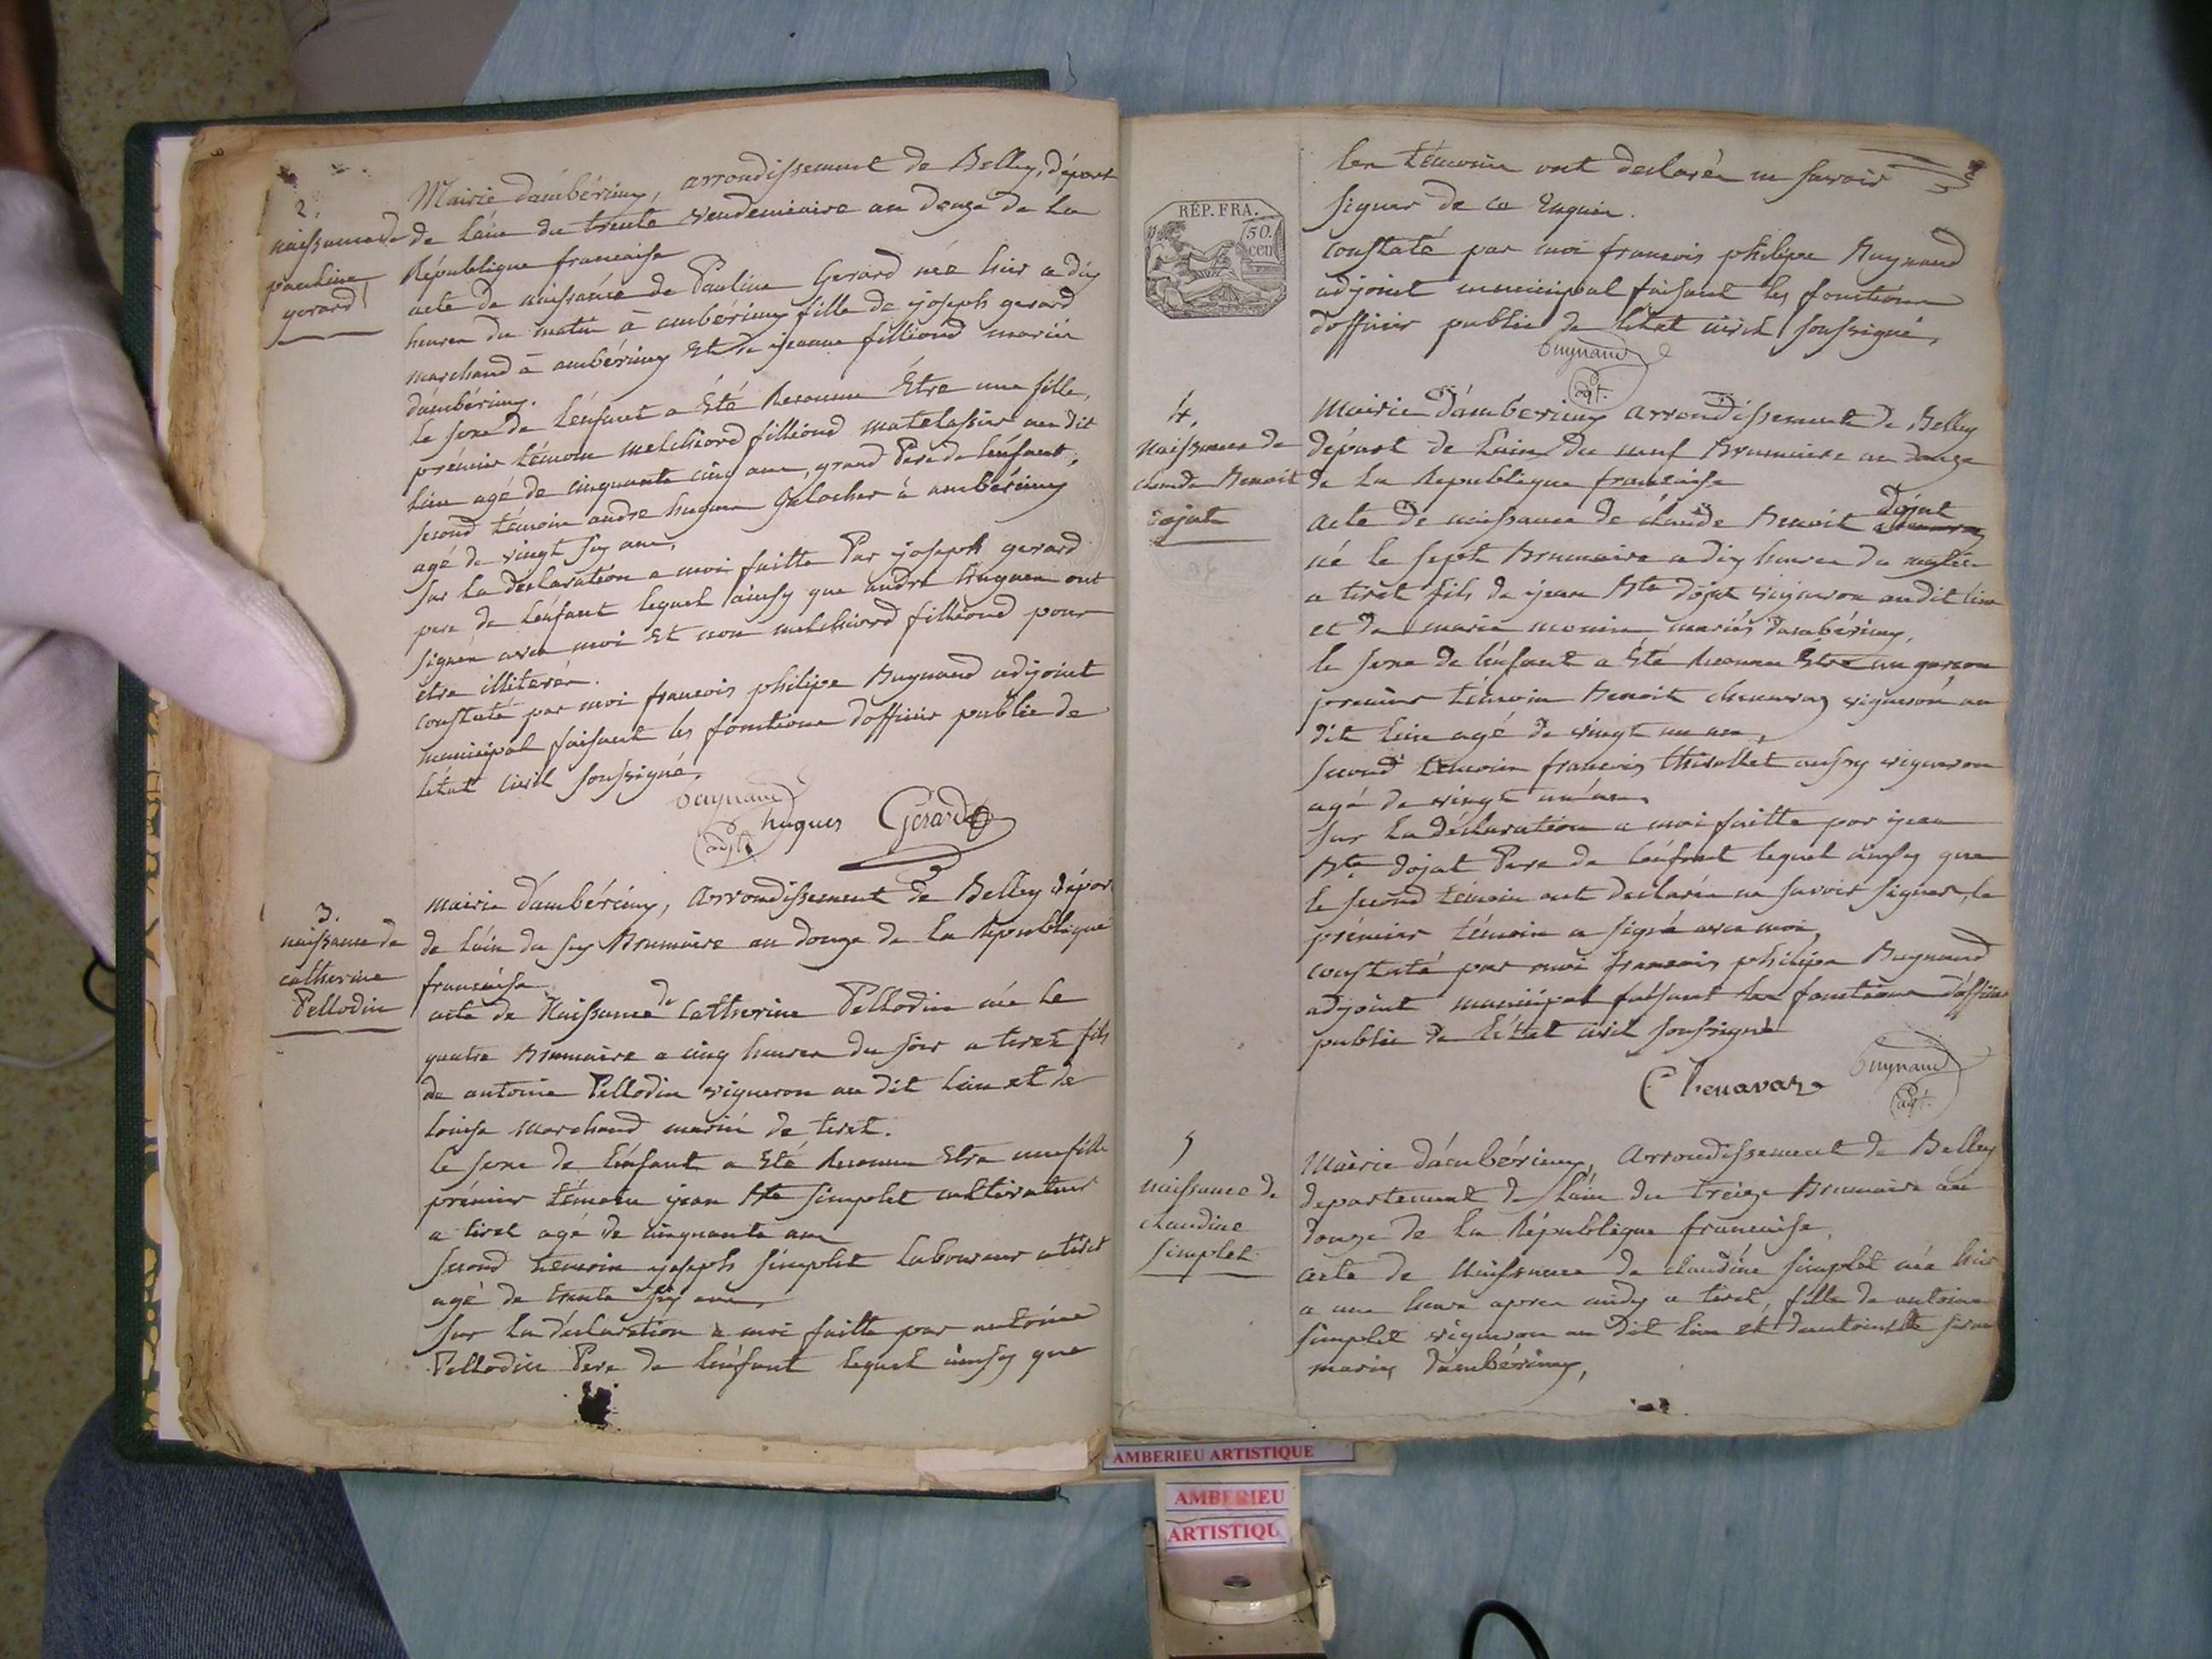 2.
naissance de
pauline
gerard
Mairie d'ambérieux, arrondissement de Belley, départ
de l'ain du trente vendemiaire an douze de la
République francaise
acte de naissance de Pauline Gerard née hier a dix
heures du matin à ambérieux fille de joseph gerard
marchand à ambérieux et de jeanne filliond mariés
d'ambérieux.
le sexe de l'enfant a été reconnu Être une fille,
prémier témoin melchiord filliond matelassier au dit
lieu agé de cinquante cinq ans, grand Pere de l'enfant,
second témoin andre hugues Galocher à ambérieux
agé de vingt six ans,
sur la déclaration a moi faitte Par joseph gerard
pere de l'enfant lequel ainsy que andré hugues ont
signés avec moi et non melchiord filliond pour
etre illiterés.
constaté par moi francois philipe Bugnand adjoint
municipal faisant les fonctions d'officier public de
l'état civil soussigné,
bugnand
adjt.
hugues Gerard
3.
naissance de
catherine
Pellodin
mairie d'ambérieux, arrondissement de Belley dépar
de l'ain du six Brumaire an douze de la République
francaise
acte de Naissance de Catherine Pellodin née le
quatre Brumaire a cinq heures du soir a tiret fils
de antoine Pellodin vigneron au dit lieu et de
louise marchand mariés de tiret.
le sexe de l'enfant a été reconnu être une fille
prémier témoin jean Bte simplet cultivateur
a tiret agé de cinquante ans
second témoin joseph simplet laboureur a tiret
agé de trente six ans,
sur la déclaration a moi faitte par antoine
Pellodin Pere de l'enfant lequel ainsy que
RÉP. FRA.
50.
cen
les témoins ont declarés ne savoir
signer de ce Enquis.
constaté par moi francois philipe Bugnand
adjoint municipal faisant les fonctions
d'officier public de l'état civil soussigné,
bugnand
adjt.
4.
Naissance de
claude Benoit
dojat
Mairie d'amberieux arrondissement de Belley
départ de l'ain du neuf Brumaire an douze
de la Republique francaise
dojat
acte de naissance de claude Benoit
né le sept Brumaire a dix heures du matin
a tiret fils de jean Bte dojat vigneron au dit lieu
et de marie monin mariés d'ambérieux,
le sexe de l'enfant a été reconnu Etre un garcon
prémier témoin Benoit chenavaz vigneron au
dit lieu agé de vingt un ans,
second témoin francois thivollet aussy vigneron
agé de vingt un ans
sur la déclaration a moi faitte par jean
Bte dojat Pere de l'enfant lequel ainsy que
le second témoin ont declarés ne savoir signer, le
prémier témoin a signé avec moi,
constaté par moi francois philipe Bugnand
adjoint municipal faisant les fonctions d'officier
public de l'état civil soussigné
Chenavaz bugnand
adjt.
5
naissance de
claudine
simplet
Mairie d'ambérieux, arrondissement de Belley
departement de l'ain du treize Brumaire an
douze de la République francaise,
acte de Naissance de claudine simplet née hier
a une heure apres midy a tiret, fille de antoine
simplet vigneron au dit lieu et d'antoinette
mariés d'ambérieux,
AMBERIEU ARTISTIQUE
AMBERIEU
ARTISTIQU